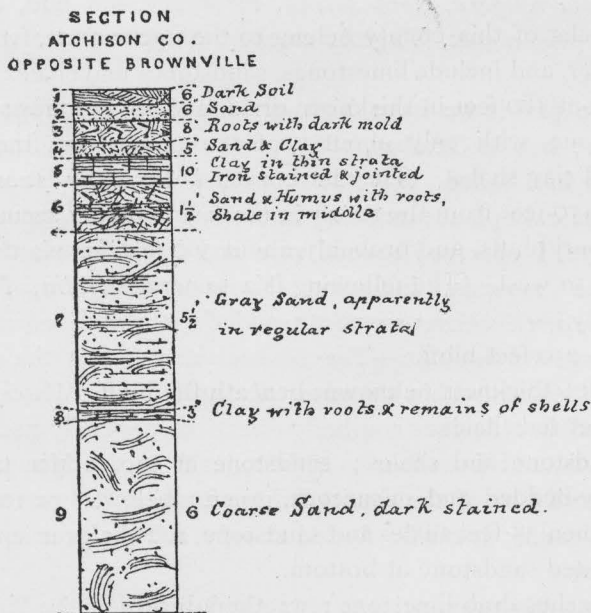 SECTION
ATCHISON CO.
OPPOSITE BROWNVILLE
1 6" Dark Soil
2 6" Sand
3 8" Roots with dark mold
4 5" Sand & Clay
5 10" Clay in thin strata
Iron stained & jointed
6 1/2' Sand & Humus with roots,
Shale in middle
7 5 1/2' Gray Sand, apparently
in regular strata
8 3" Clay with roots & remains of shells
9 6' Coarse Sand, dark stained.